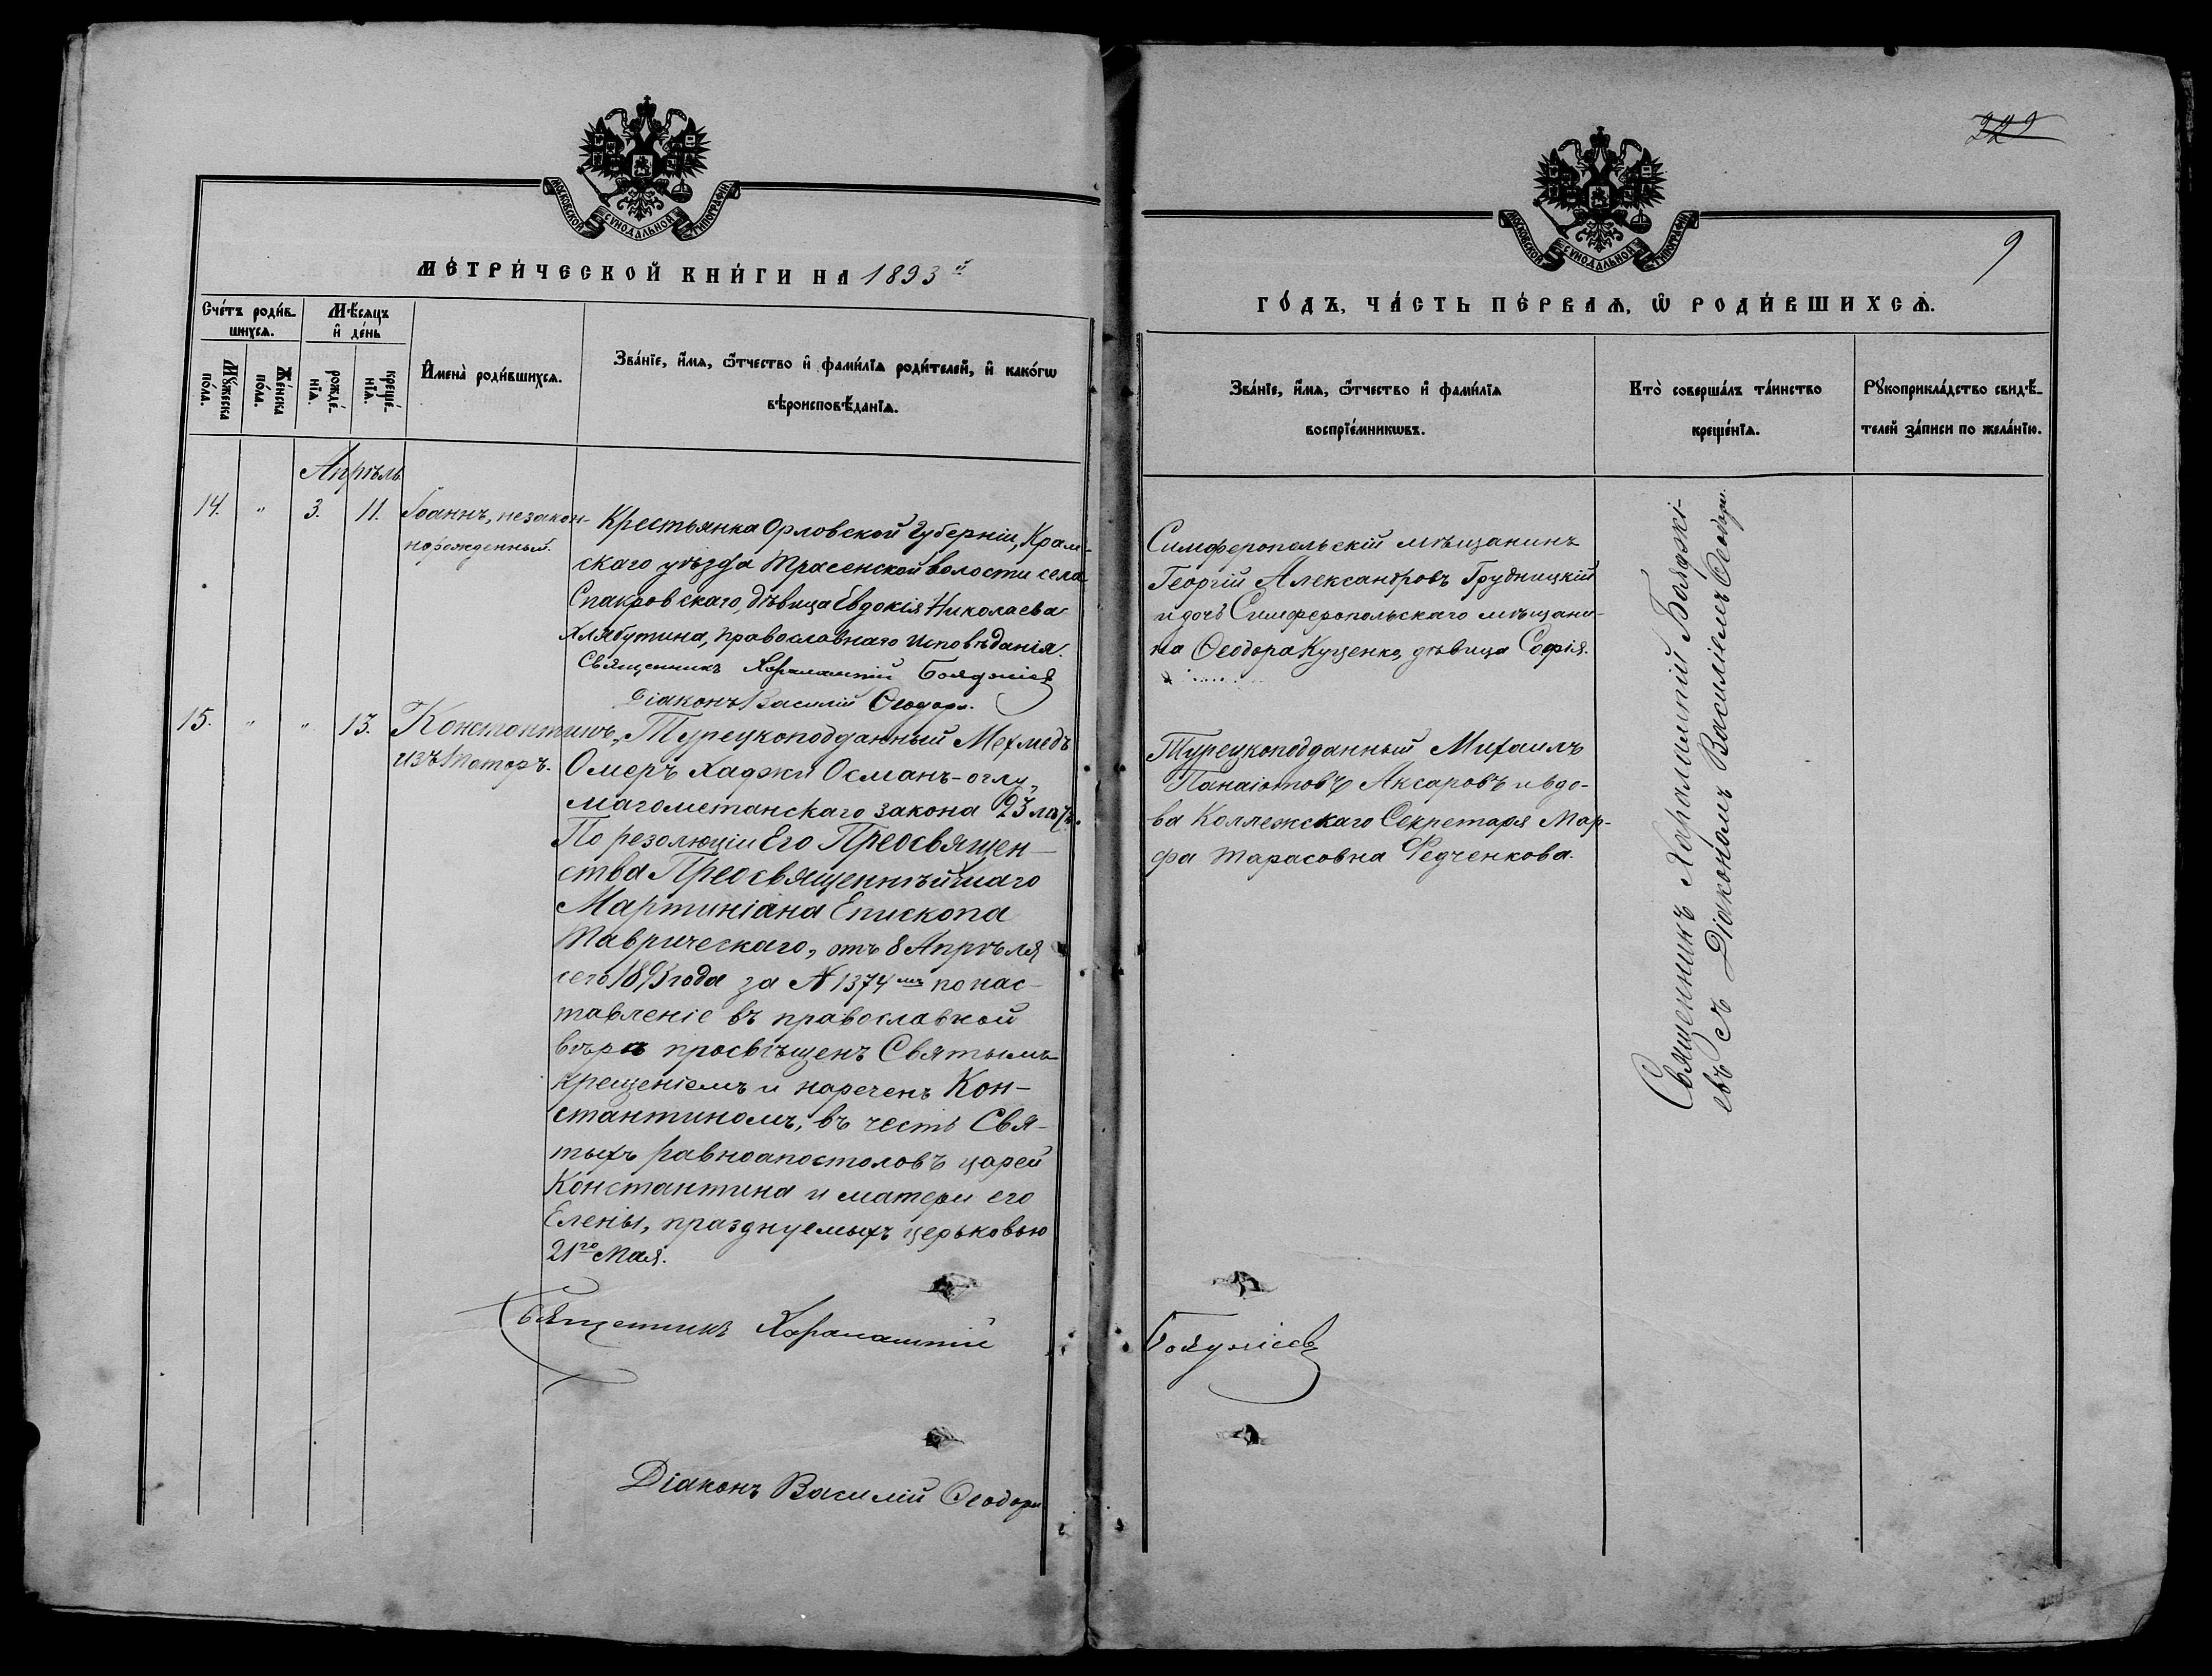 МОСКОВСКОЙ СѴНОДАЛЬНОЙ ТИПОГРАФІИ
МЕТРИ́ЧЕСКОЙ КНИ́ГИ НА 1893 й
Сче́тъ роди́в-
шихсѧ.
Мѣ́сѧцъ
и҆ де́нь
Мꙋ́жеска
по́ла.
Же́нска
по́ла.
рожде́-
нїѧ.
креще́-
нїѧ.
И҆мена̀ роди́вшихсѧ.
Зва́нїе, и҆́мѧ, ѻ҆́тчество и҆ фами́лїѧ роди́телей, и҆ како́гѡ
вѣроисповѣ́данїѧ.
Апрѣль
14. " 3. 11.
Іоаннъ, незакон-
норожденный.
Крестьянка Орловской Губерніи, Кром-
скаго уѣзда Трасенской волости села
Спакровскаго, дѣвица Евдокія Николаева
Хлябутина, православнаго исповѣданія.
Священникъ Харалампій Бояджіев
Діаконъ Василій Ѳеодори.
15. " " 13.
Константинъ,
изъ татаръ.
Турецкоподданный Мехмедъ
Омеръ Хаджи Османъ-оглу,
магометанскаго закона 23 лѣтъ.
По резолюціи Его Преосвящен-
ства Преосвященнѣйшаго
Мартиніана Епископа
Таврическаго, отъ 8 Апрѣля
сего 1893 года за № 1374 мъ по нас-
тавленіе въ православной
вѣрѣ просвѣщенъ Святымъ
крещеніемъ и нареченъ Кон-
стантиномъ, въ честь Свя-
тыхъ равноапостоловъ царей
Константина и матери его
Елены, празднуемыхъ церьковью
21го Мая.
Священникъ Харалампій
Діаконъ Василій Ѳеодори
222
МОСКОВСКОЙ СѴНОДАЛЬНОЙ ТИПОГРАФІИ
9
ГО́ДЪ, ЧА́СТЬ ПЕ́РВАѦ, Ѡ҆ РОДИ́ВШИХСѦ.
Зва́нїе, и҆́мѧ, ѻ҆́тчество и҆ фами́лїѧ
воспрїе́мникѡвъ.
Кто̀ соверша́лъ та́инство
креще́нїѧ.
Рꙋкоприкла́дство свидѣ́-
телей за́писи по жела́нїю.
Симферопольскій мѣщанинъ
Георгій Александровъ Грудницкій
и дочь Симферопольскаго мѣщани-
на Ѳеодора Куценко, дѣвица Софія.
Турецкоподданный Михаилъ
Панаіотовъ Аксаровъ и вдо-
ва Коллежскаго Секретаря Мар-
фа Тарасовна Федченкова.
Священникъ Харалампій Бояджі-
евъ съ Діакономъ Василіемъ Ѳеодори.
Бояджіевъ